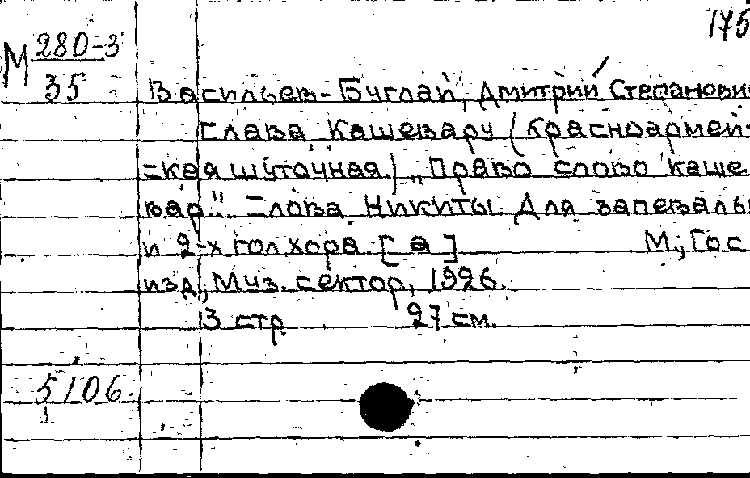 175
М 280-3
35
Васильев-Буглай, Дмитрий Степанови
Слава кашевару (красноармей-
=ская шуточная.) „Право слово каше
вар". Слова Никиты. Для запевалы
и 2-х гол хора [a] М., Гос
изд, Муз. сектор, 1926.
3 стр 27 см.
5106